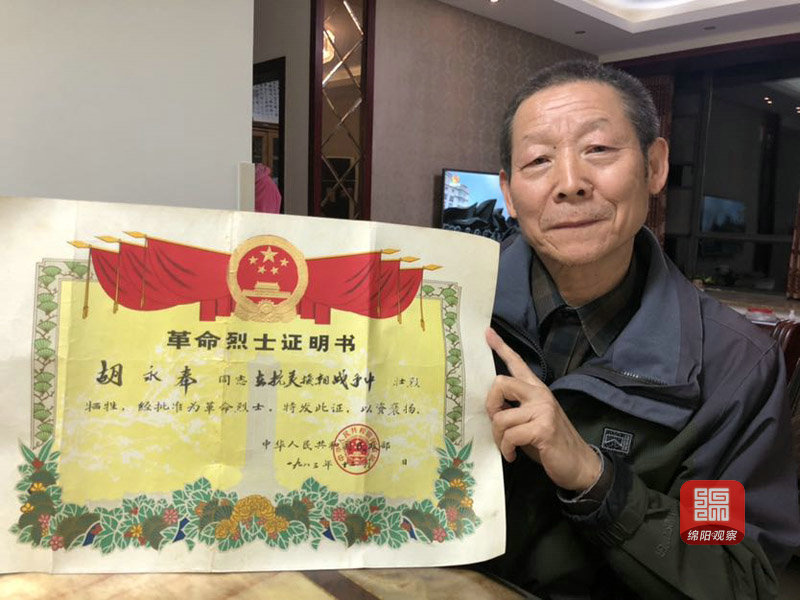 革命烈士证明书
胡永奉 同志在抗美援朝战争中 壮烈
牺牲，经批准为革命烈士。特发此证，以资褒扬。
中华人民共和国民政部
一九八三年十二月 日
绵阳观察